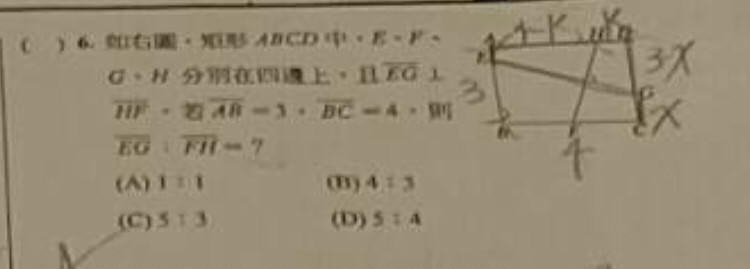 ( ) 6. 如右圖，矩形 ABCD 中，E、F、
G、H 分別在四邊上，且 EG ⊥
HF，若 AB = 3，BC = 4，則
EG : FH = ?
(A) 1 : 1 (B) 4 : 3
(C) 5 : 3 (D) 5 : 4
4-K K
3 3-X
X
4